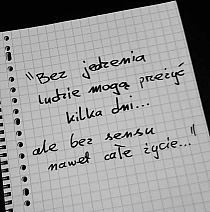 "Bez jedzenia
ludzie mogą przeżyć
kilka dni...
ale bez sensu
nawet całe życie..."